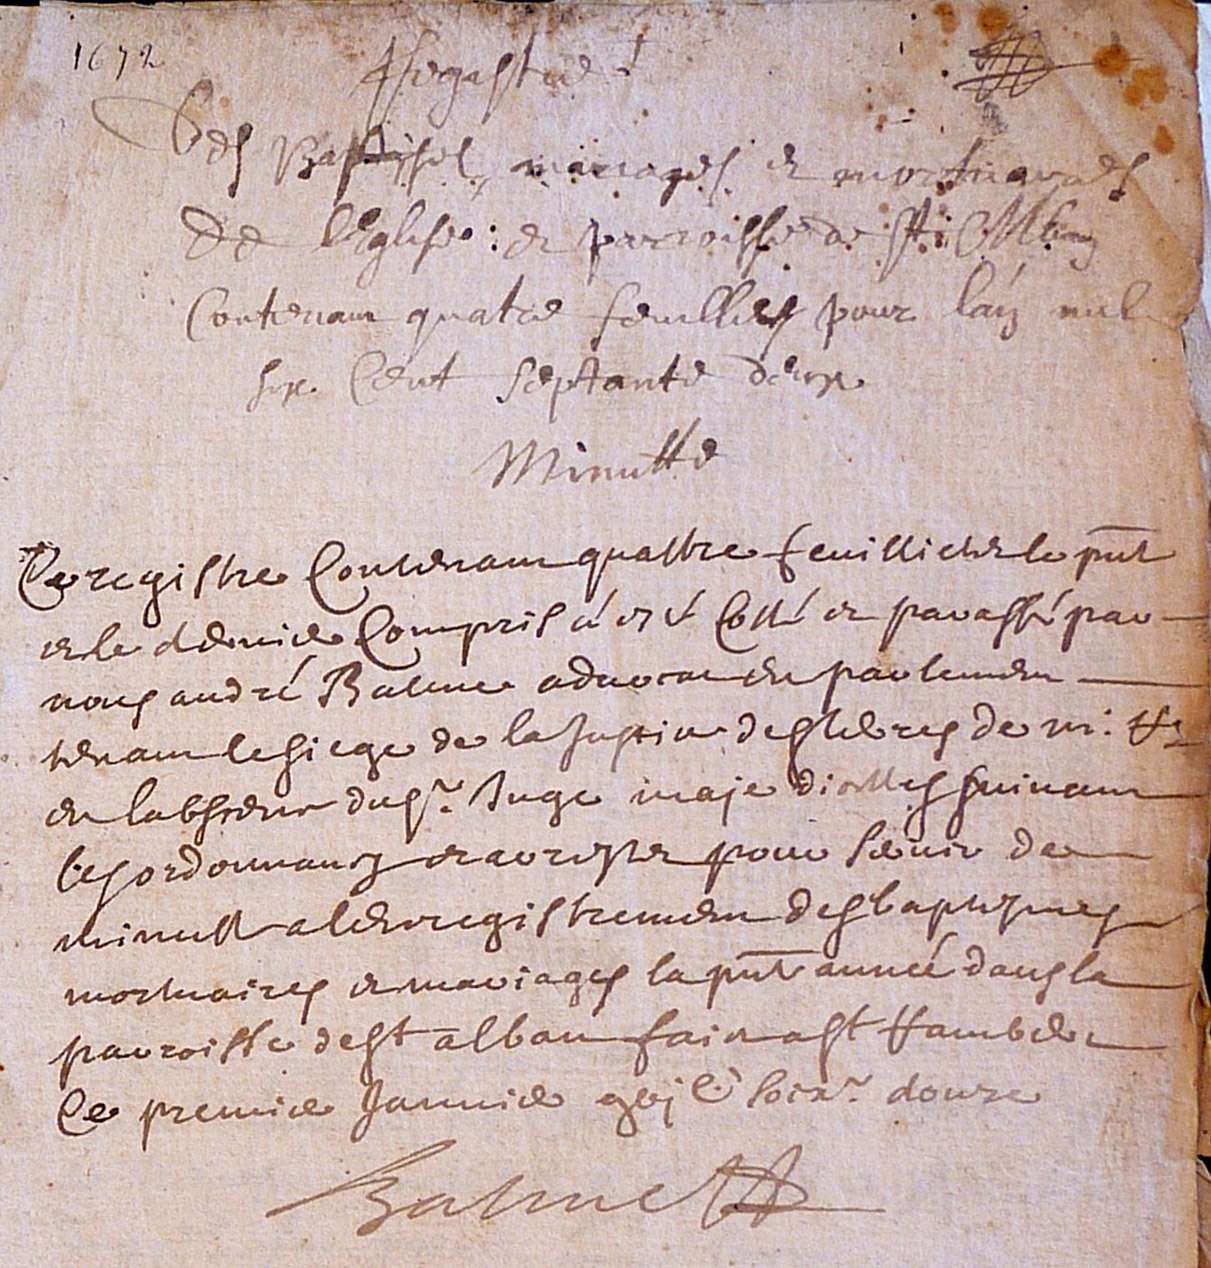 1672
Registre
des Baptisês, mariages et mortueres
De leglise : et parroisse de St Alban
Contenant quatre feuilles pour lan mil
six Cent septante deux
Minutte
Ce registre Contenant quattre feuillietz le pnt
et le dernier Compris a esté Cotté et paraffé par
nous andré Balme advocat en parlement
tenant le siege de la Justice des terres de
en labsence du sr. Juge maje dicelles suivant
les ordonnances et arrestz pour servir de
minutte a lenregistrement des baptesmes
mortuaires et mariages la pnte année dans la
parroisse de st alban fait a st rambert
Ce premier Janvier gvj C soixte. douze
Balme